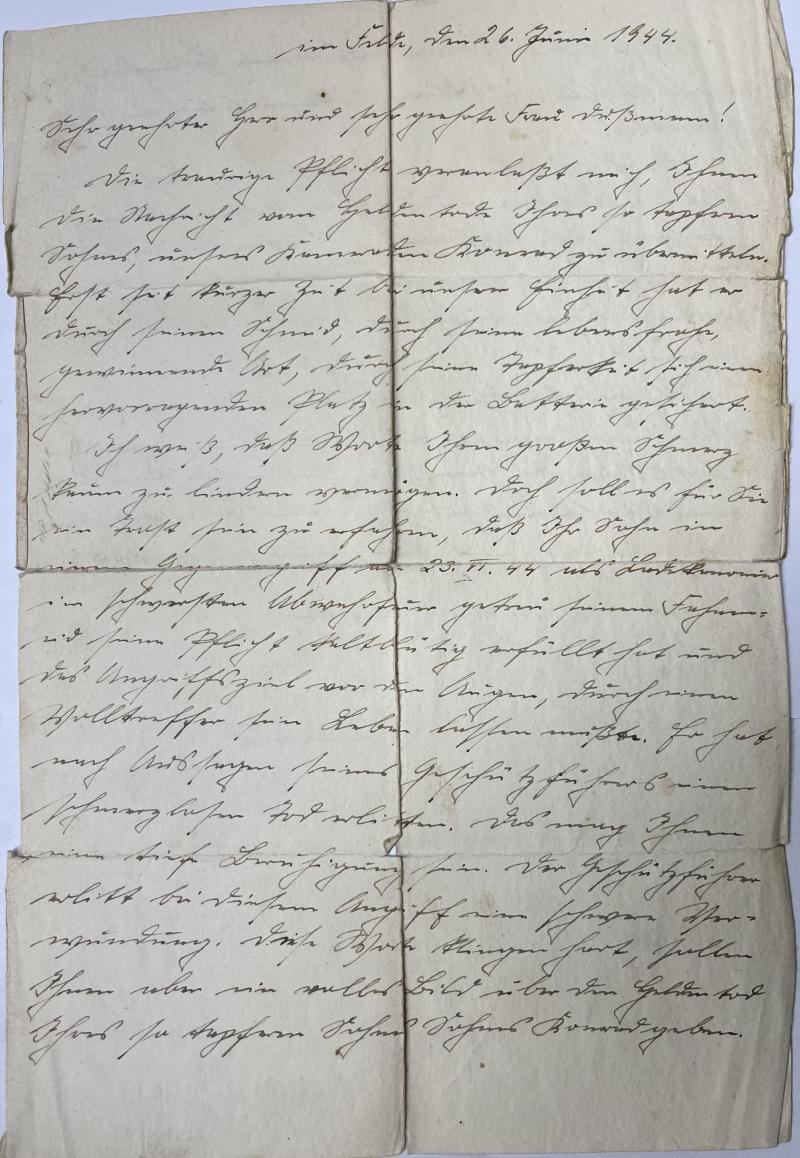 im Felde, den 26. Juni 1944.
Sehr geehrter Herr und sehr geehrte Frau Dußmann!
Die traurige Pflicht veranlaßt mich, Ihnen
die Nachricht vom Heldentode Ihres so tapferen
Sohnes, unseres Kameraden Konrad zu übermitteln.
Erst seit kurzer Zeit bei unserer Einheit hat er
durch seinen Schneid, durch seine lebensfrohe,
gewinnende Art, durch seine Tapferkeit sich einen
hervorragenden Platz in der Batterie gesichert.
Ich weiß, daß Worte Ihren großen Schmerz
kaum zu lindern vermögen. Doch soll es für Sie
ein Trost sein zu erfahren, daß Ihr Sohn in
einem Gegenangriff am 23. VI. 44 als Ladekanonier
im schwersten Abwehrfeuer getreu seinem Fahnen=
eid seine Pflicht kaltblütig erfüllt hat und
das Angriffsziel vor den Augen, durch einen
Volltreffer sein Leben lassen mußte. Er hat
nach Aussagen seines Geschützführers einen
schmerzlosen Tod erlitten. Das mag Ihnen
eine tiefe Beruhigung sein. Der Geschützführer
erlitt bei diesem Angriff eine schwere Ver=
wundung. Diese Worte klingen hart, sollen
Ihnen aber ein volles Bild über den Heldentod
Ihres so tapferen Sohnes Sohnes Konrad geben.